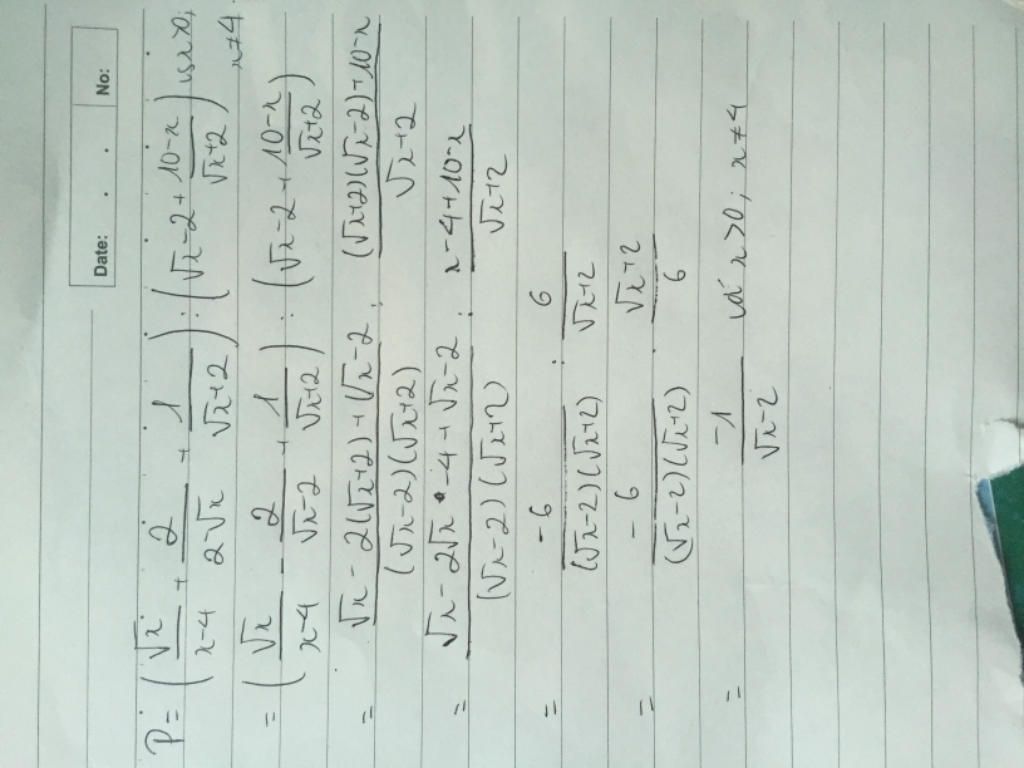 Date: . . No:
P = (√x/(x-4) + 2/(2-√x) + 1/(√x+2)) : (√x-2 + (10-x)/(√x+2)) với x>0; x≠4
= (√x/(x-4) - 2/(√x-2) + 1/(√x+2)) : (√x-2 + (10-x)/(√x+2))
= (√x - 2(√x+2) + √x-2)/((√x-2)(√x+2)) : ((√x+2)(√x-2)+10-x)/(√x+2)
= (√x - 2√x - 4 + √x-2)/((√x-2)(√x+2)) : (x-4+10-x)/(√x+2)
= -6/((√x-2)(√x+2)) : 6/(√x+2)
= -6/((√x-2)(√x+2)) . (√x+2)/6
= -1/(√x-2) với x>0; x≠4